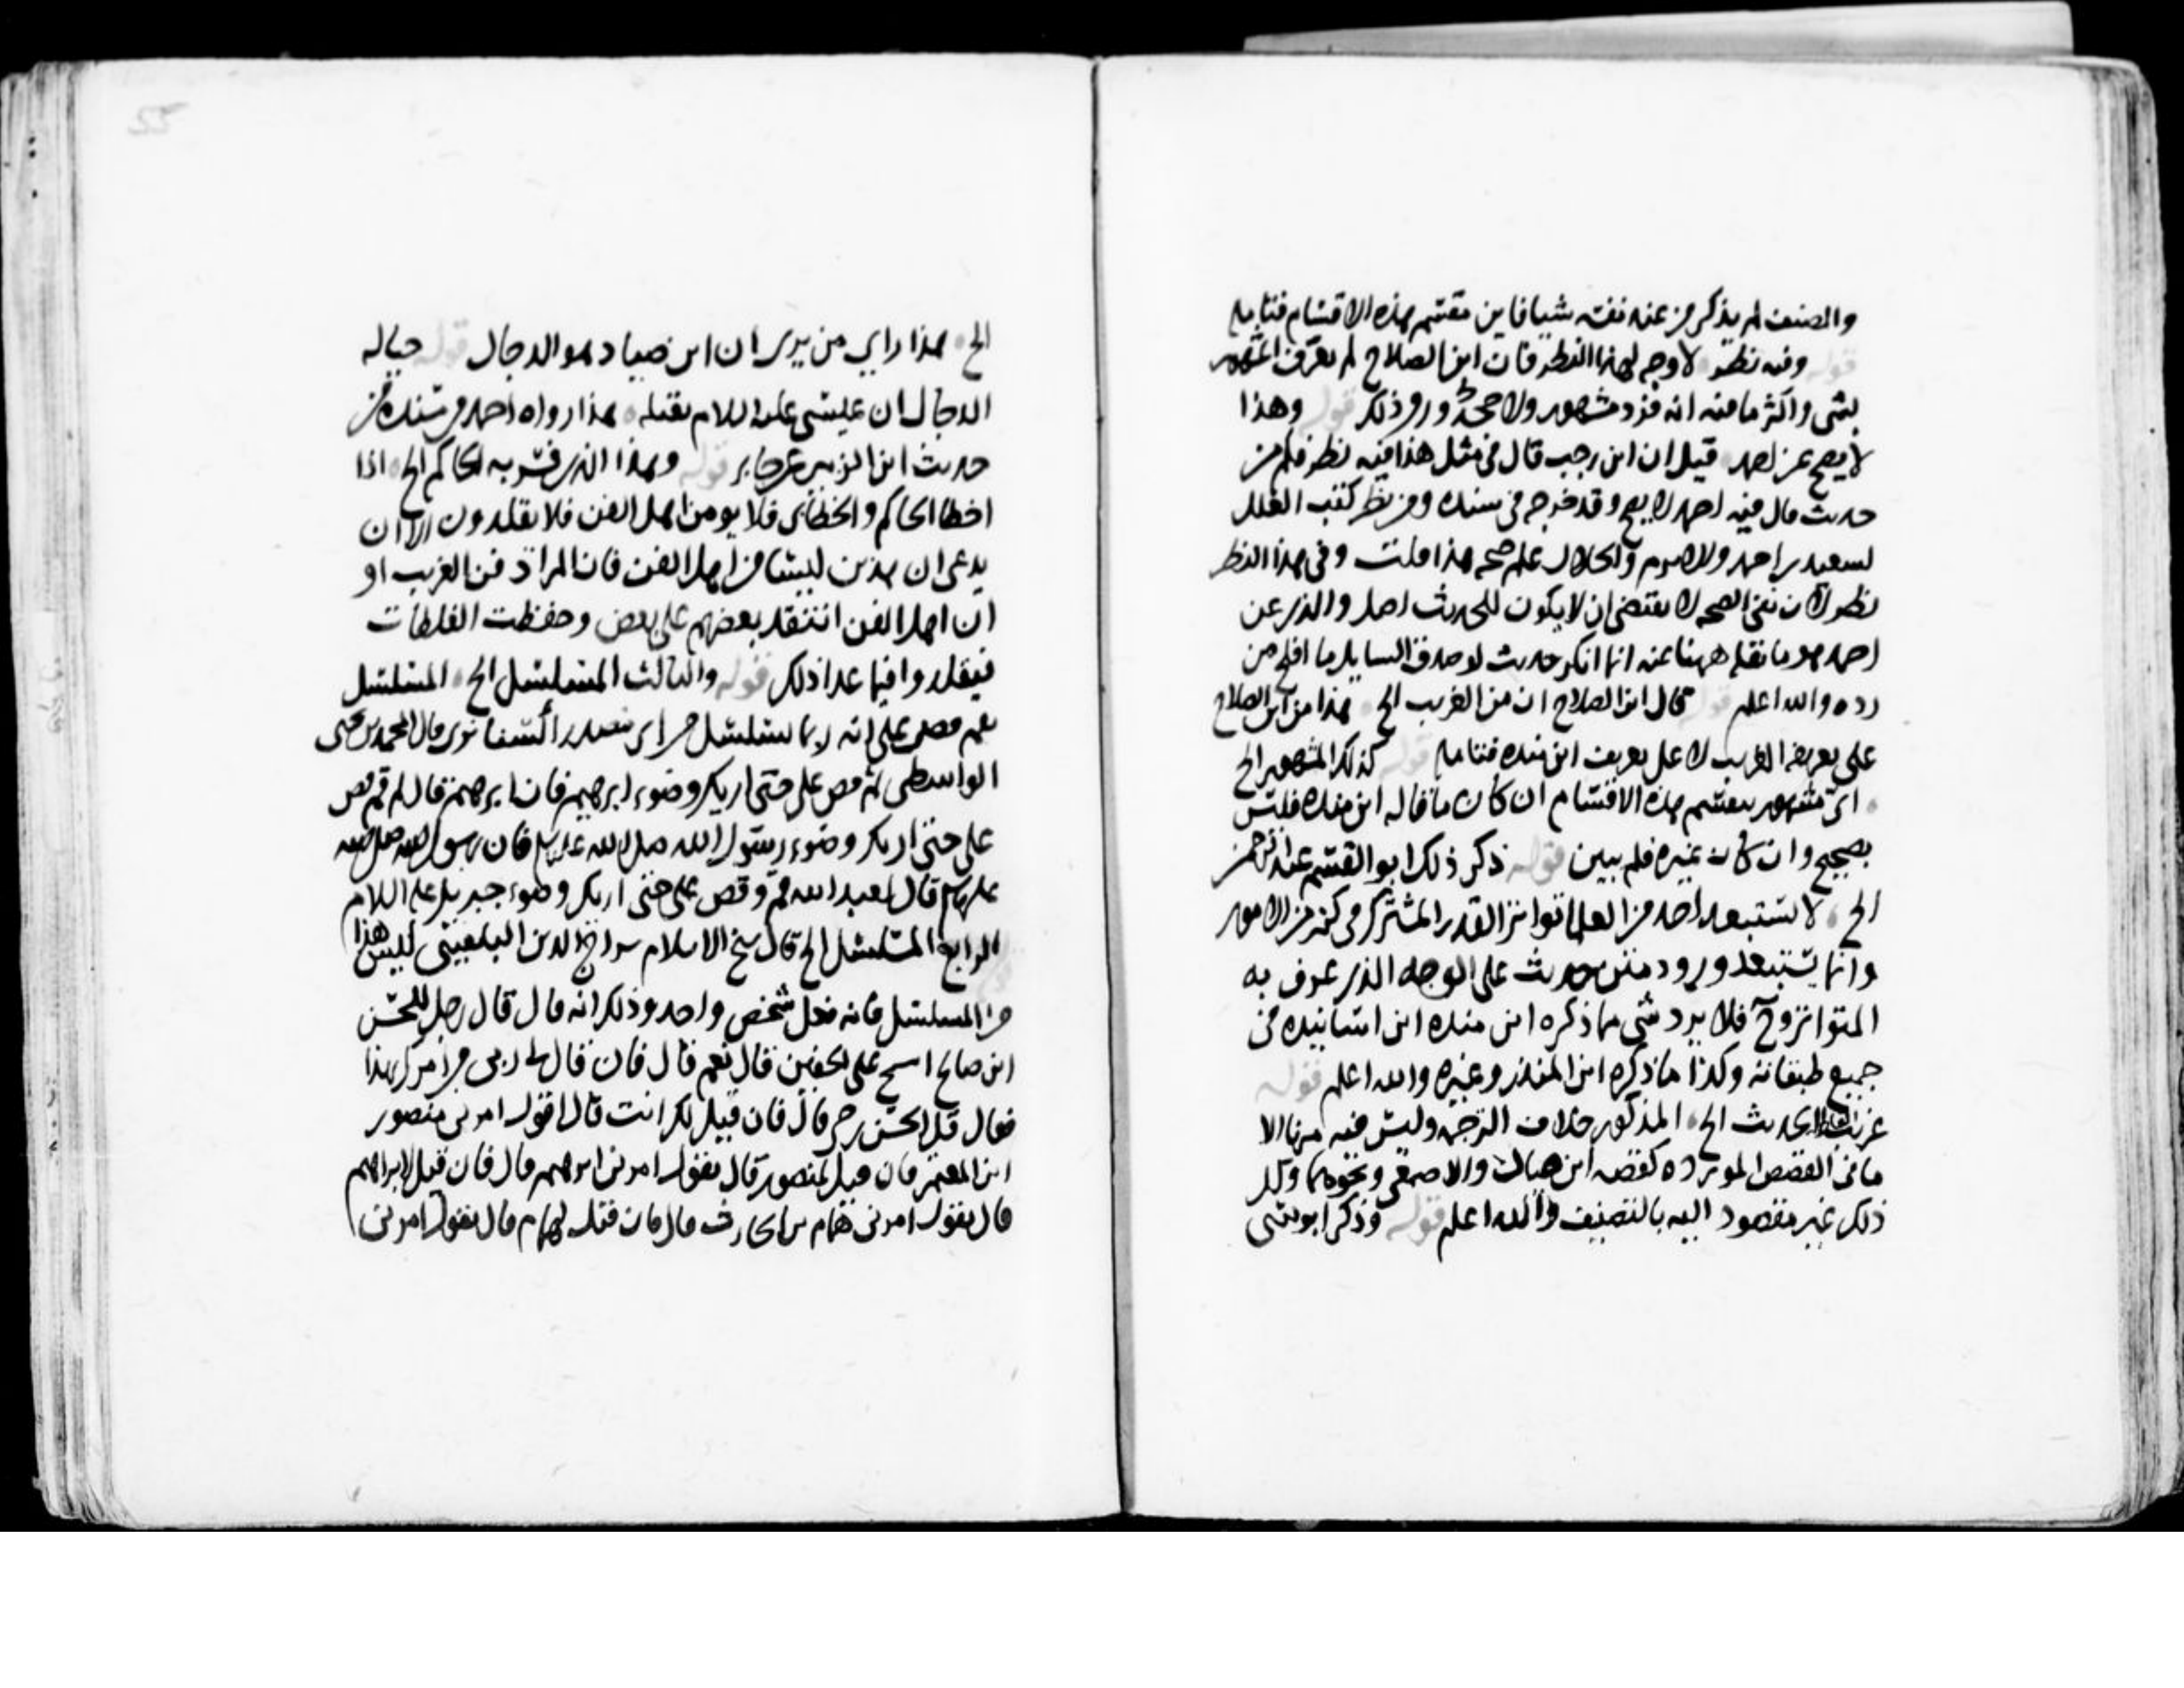 والمصنف لم يذكر من عنده نفسه شيا فاين مقسم هذه الاقسام فتامله
قوله وفيه نظر لا وجه لهذا النظر فان ابن الصلاح لم يعرف المشهور
بشي واكثر ما فيه انه فرد مشهور ولا صحة ورود ذلك قوله وهذا
لا يصح عن احمد قيل ان ابن رجب قال في مثل هذا فيه نظر فكم من
حديث قال فيه احمد لا يصح وقد خرجه في مسنده ومن نظر كتب العلل
لسعيد احمد وللاثرم والخلال علم صحة هذا قلت وفي هذا النظر
نظر لان نفي الصحة لا يقتضي ان لا يكون للحديث اصل والذي عن
احمد هو ما نقله ههنا عنه انما انكر حديث لو صدق السايل ما افلح من
رده والله اعلم قوله قال ابن الصلاح ان من الغريب الخ هذا من ابن الصلاح
على تعريفه الغريب لا على تعريف ابن منده فتامله قوله كذلك المشهور الخ
اي مشهور ينقسم هذه الاقسام ان كان ما قاله ابن منده فليس
بصحيح وان كان غيره فلم يبين قوله ذكر ذلك ابو القسم عبد الرحمن
الخ لا يستبعد احد من العلما تواتر القدر المشترك في كثير من الامور
وانما يستبعد ورود متن حديث على الوجه الذي عرف به
المتواتر وح فلا يرد شي مما ذكره ابن منده اين اسانيده في
جميع طبقاته وكذا ما ذكره ابن المنذر وغيره والله اعلم قوله
غريب الحديث الخ المذكور خلاف الترجمة وليس فيه منها الا
ما في القصص الموردة كقصة ابن حبان والاصمعي ونحوهما وكل
ذلك غير مقصود اليه بالتصنيف والله اعلم قوله وذكر ابو موسى
الخ هذا راي من يرى ان ابن صياد هو الدجال قوله حياله
الدجال ان عيسى عليه السلام يقتله هذا رواه احمد في مسنده من
حديث ابن الزبير عن جابر قوله وهذا الذي فسر به الحاكم الخ اذا
اخطا الحاكم والخطابي فلا يومن اهل الفن فلا يقلدون الا ان
يدعى ان هذين ليسا من اهل الفن فان المراد فن الغريب او
ان اهل الفن انتقد بعضهم على بعض وحفظت الغلطات
فيقلدوا فيما عدا ذلك قوله والثالث المسلسل الخ المسلسل
بقم فصب علي انه ربما يتسلسل
الواسطي ثم فصب علي حتى اريك وضوء ابرهيم فان ابرهيم قال لي قم فصب
علي حتى اريك وضوء رسول الله صلى الله عليه وسلم فان رسول الله صلى الله
عليه وسلم قال لعبد الله قم وقص علي حتى اريك وضوء جبريل عليه السلام
الرابع المسلسل الخ قال شيخ الاسلام سراج الدين البلقيني ليس هذا
من المسلسل فانه فعل شخص واحد وذلك انه قال قال رجل للحسن
ابن صالح امسح على الخفين قال نعم قال فان قال لي ربي من امرك بهذا
فقال قل الحسن بن حي قال فان قيل لك انت قال اقول امرني منصور
ابن المعتمر فان قيل لمنصور قال يقول امرني ابرهيم قال فان قيل لابراهيم
قال يقول امرني همام بن الحارث قال فان قيل لهمام قال يقول امرني